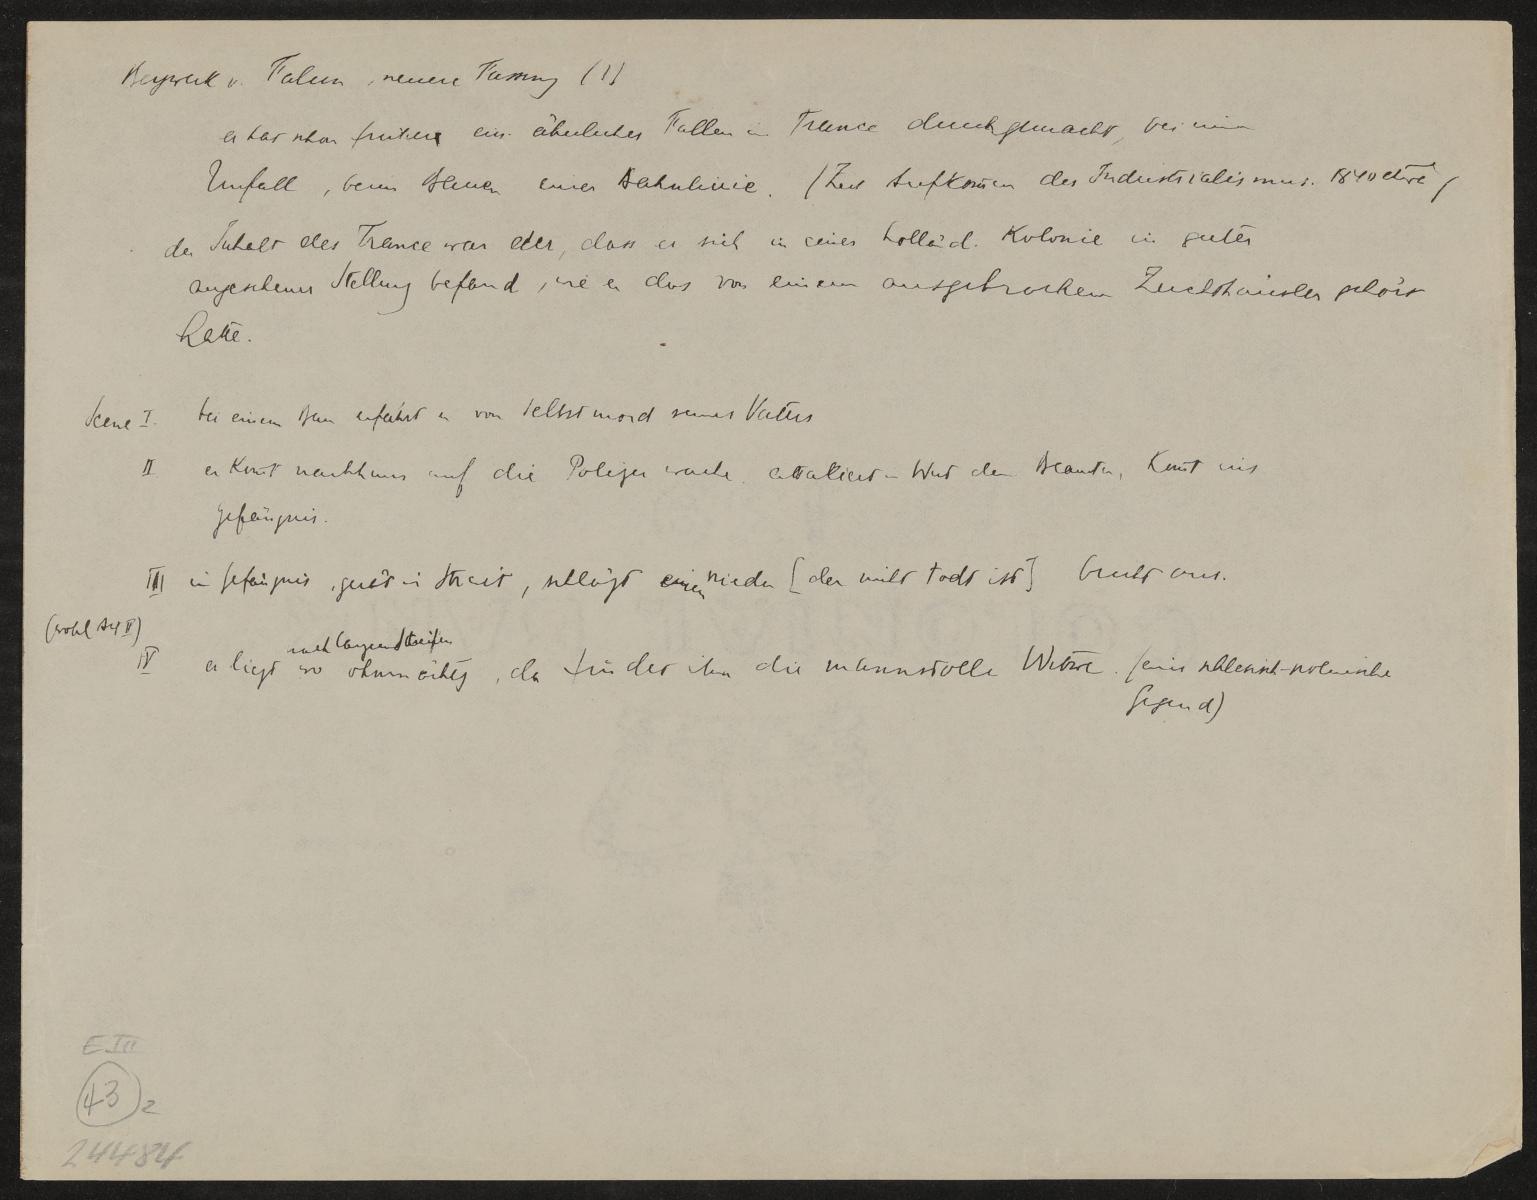 Bergwerk v. Falun, neuere Fassung (1)
er hat schon früher ein ähnliches Fallen in Trance durchgemacht, bei einem
Unfall, beim Bauen einer Bahnlinie. (Zeit Aufkomen des Industrialismus. 1840 etwa)
der Inhalt des Trance war der, dass er sich in einer holländ. Kolonie in guter
angesehener Stellung befand, wie er das von einem ausgebrochenen Zuchthäusler gehört
hatte.
Scene I. bei einem Bau erfährt er von Selbstmord seines Vaters
II er komt nachhaus auf die Polizei wache. attakiert in Wut den Beamten, komt ins
Gefängnis.
III im Gefängnis, gerät in Streit, schlägt einen nieder [der nicht todt ist] bricht aus.
(wohl Akt II)
nach langem Streifen
IV er liegt wo ohnmächtig, da findet ihn die mannstolle Witwe. (eine schlesisch-polnische
Gegend)
E III
43 2
24484